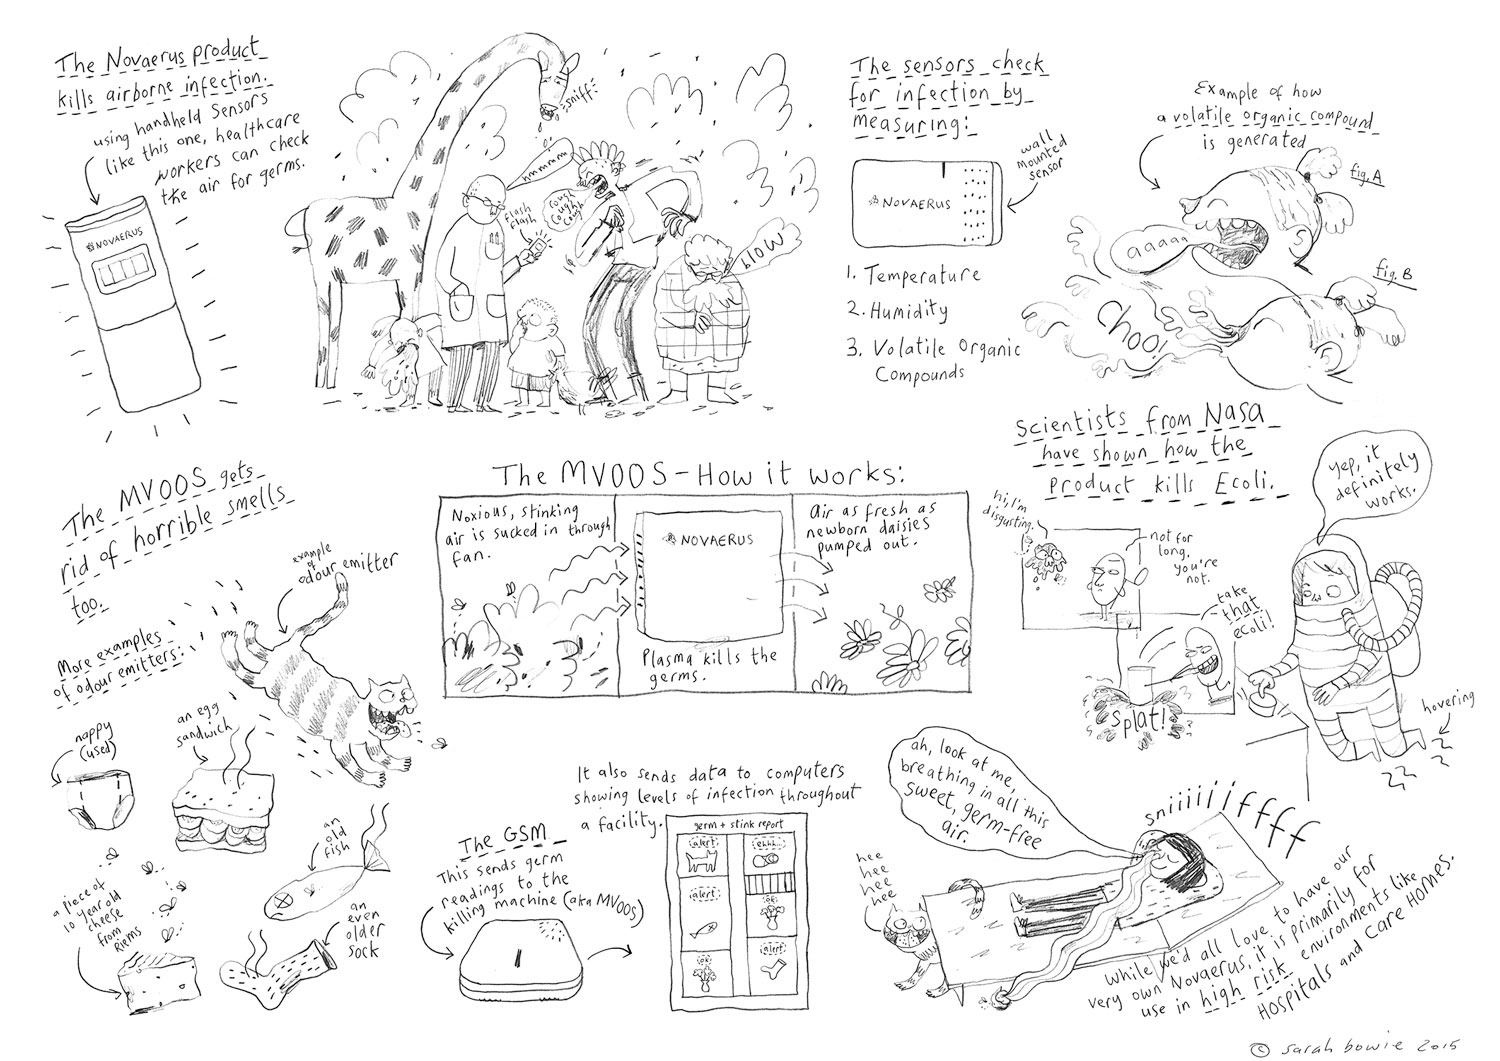 The Novaerus product
kills airborne infection.
using handheld Sensors
like this one, healthcare
workers can check
the air for germs.
NOVAERUS
sniff
hmmmmm
flash
flash
cough
cough
cough
blow
The sensors check
for infection by
measuring:
wall
mounted
sensor
NOVAERUS
1. Temperature
2. Humidity
3. Volatile Organic
Compounds
Example of how
a volatile organic compound
is generated
fig. A
aaaaa
fig. B
Choo!
Scientists from Nasa
have shown how the
product kills Ecoli.
hi, I'm
disgusting.
not for
long,
you're
not.
take
that
ecoli!
Splat!
yep, it
definitely
works.
hovering
The MVOOS gets
rid of horrible smells
too.
example
of
odour emitter
More examples
of odour emitters:
nappy
(used)
an egg
sandwich
an
old
fish
an
even
older
sock
a piece of
10 year old
cheese
from
Riems
The MVOOS - How it works:
Noxious, stinking
air is sucked in through
fan.
NOVAERUS
Plasma kills the
germs.
Air as fresh as
newborn daisies
pumped out.
The GSM
This sends germ
readings to the
killing machine (aka MVOOS)
It also sends data to computers
showing levels of infection throughout
a facility.
germ + stink report
alert
ehhh...
alert
ok
ok
alert
ah, look at me,
breathing in all this
sweet, germ-free
air.
sniiiiiiffff
hee
hee
hee
hee
While we'd all love to have our
very own Novaerus, it is primarily for
use in high risk environments like
Hospitals and Care Homes.
© sarah bowie 2015